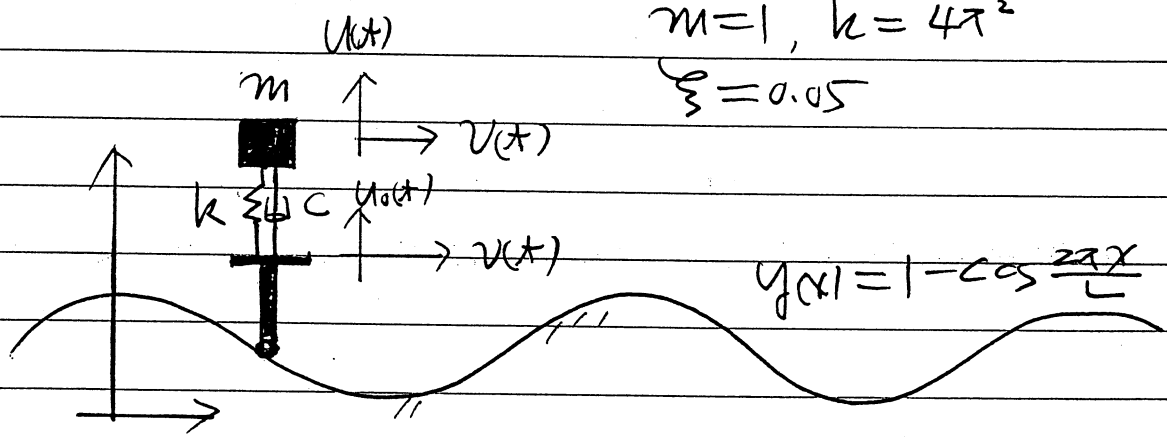 U(t)
m=1, k=4π²
ξ=0.05
m
V(t)
k
C
u₀(t)
v(t)
y(x)=1-cos 2πx/L